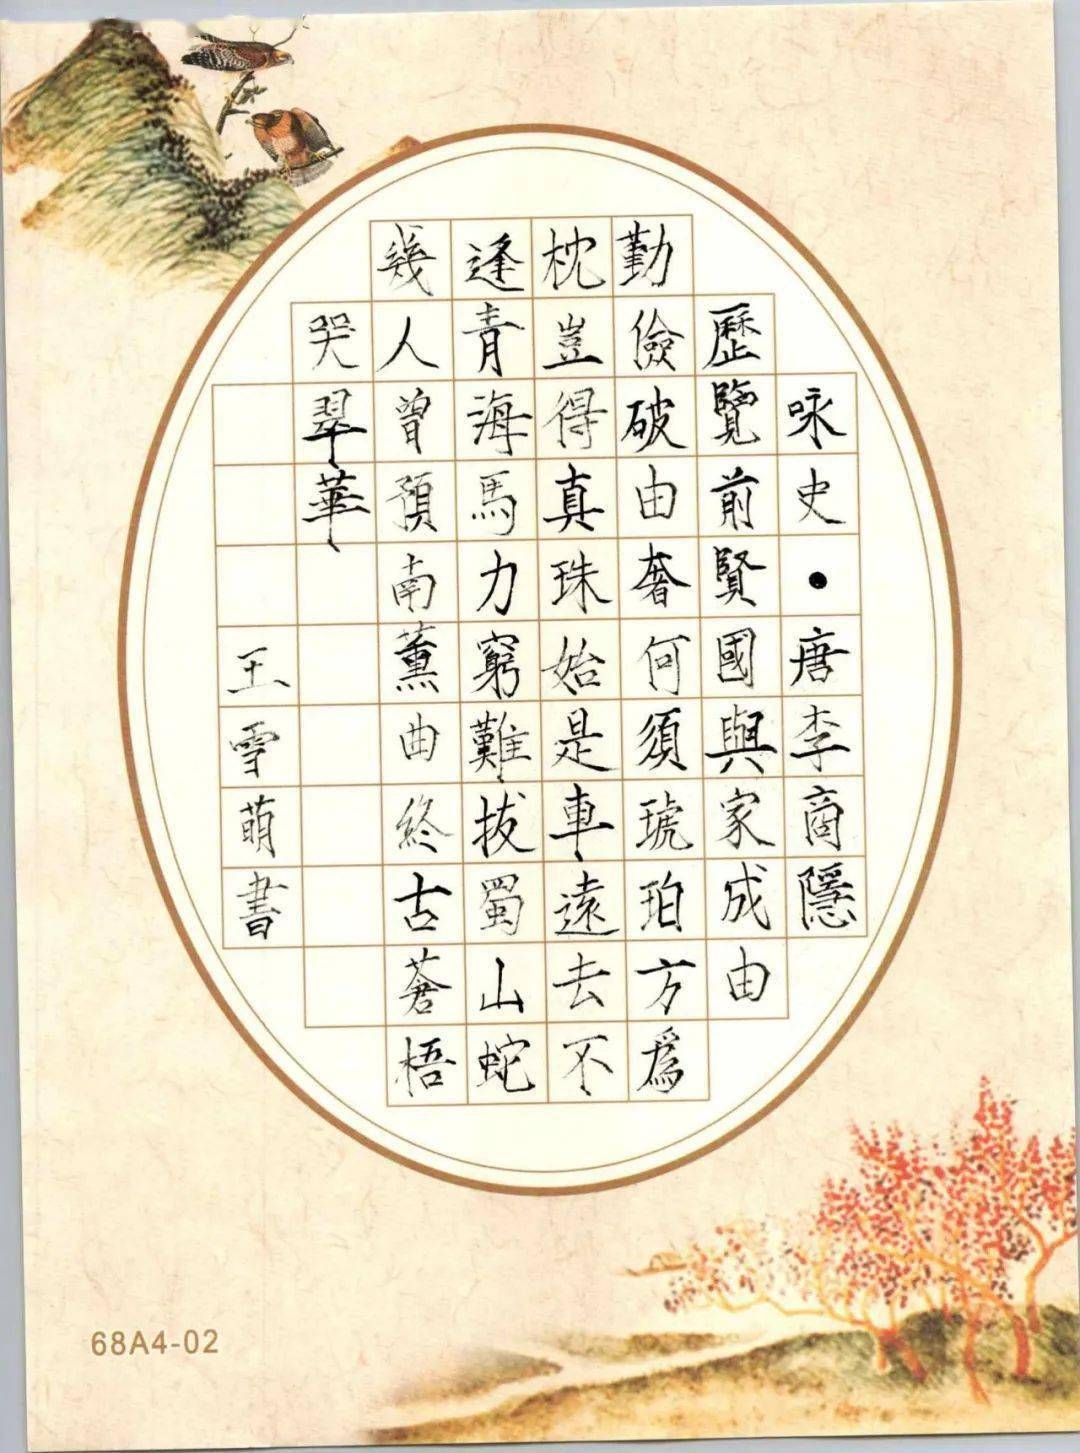 咏史•唐李商隱
歷覽前賢國與家成由
勤儉破由奢何須琥珀方爲
枕豈得真珠始是車遠去不
逢青海馬力窮難拔蜀山蛇
幾人曾預南薰曲終古蒼梧
哭翠華
王雪萌書
68A4-02